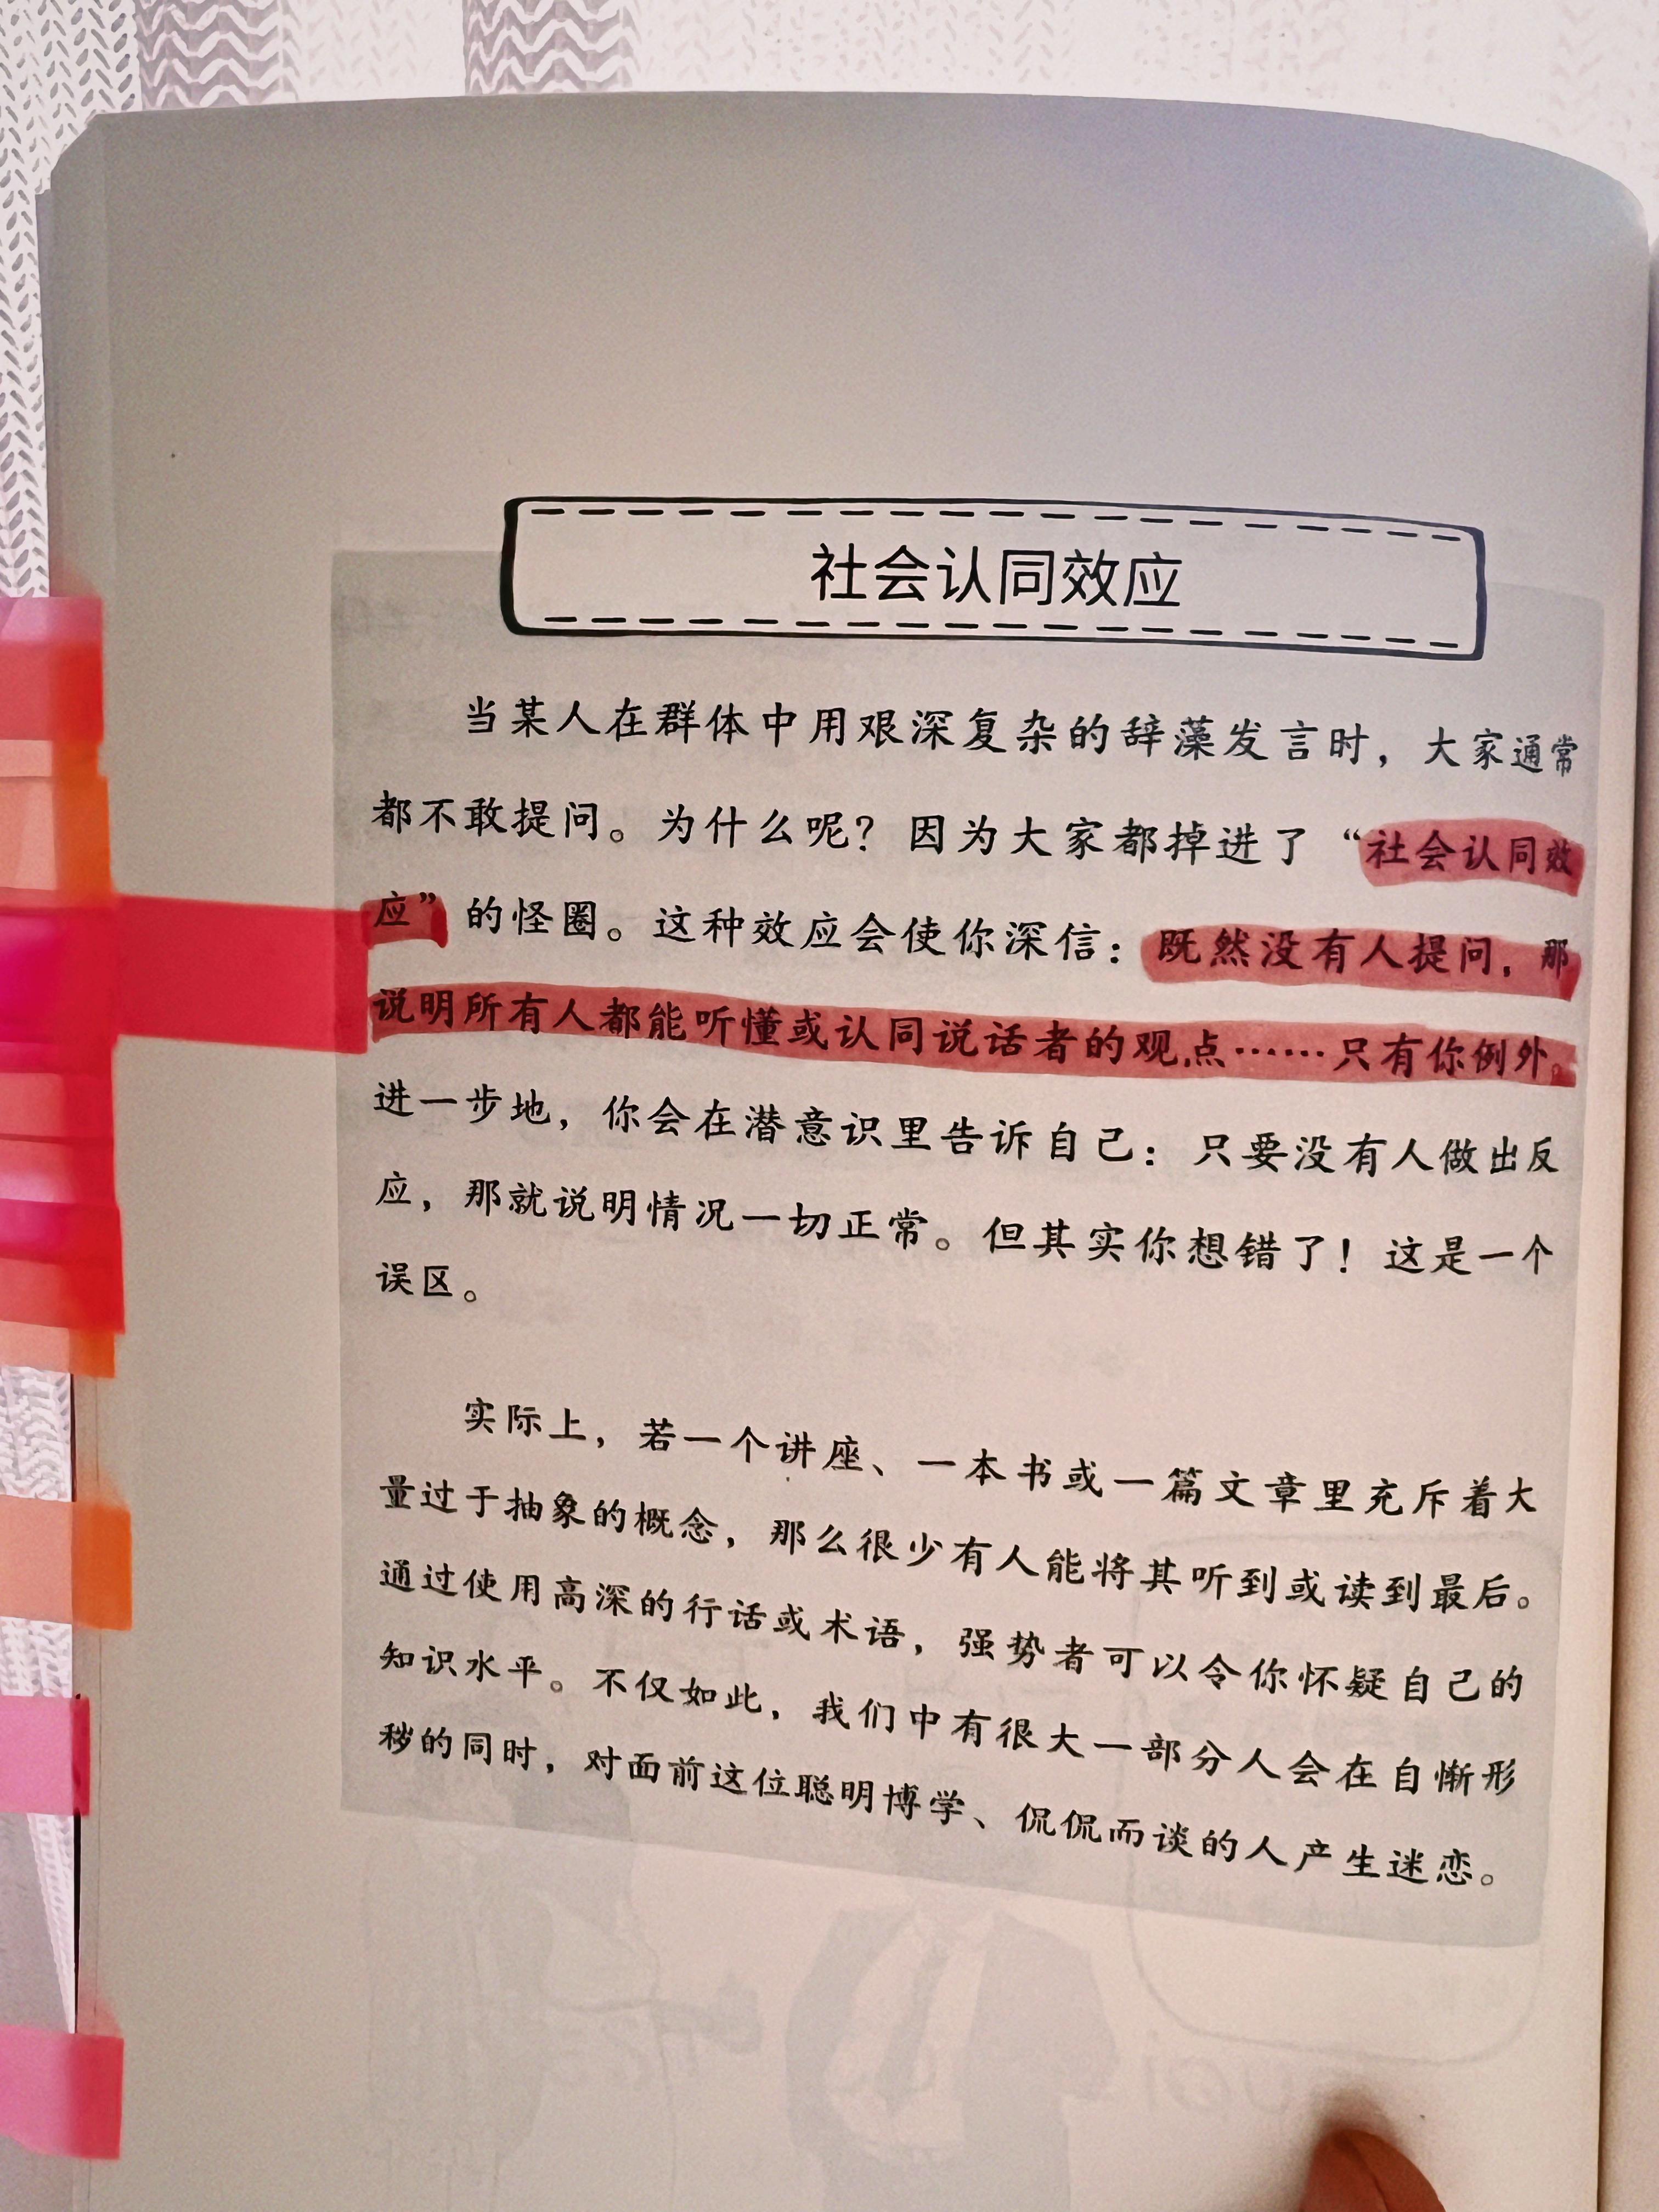 社会认同效应
当某人在群体中用艰深复杂的辞藻发言时，大家通常
都不敢提问。为什么呢？因为大家都掉进了“社会认同效
应”的怪圈。这种效应会使你深信：既然没有人提问，那
说明所有人都能听懂或认同说话者的观点……只有你例外。
进一步地，你会在潜意识里告诉自己：只要没有人做出反
应，那就说明情况一切正常。但其实你想错了！这是一个
误区。
实际上，若一个讲座、一本书或一篇文章里充斥着大
量过于抽象的概念，那么很少有人能将其听到或读到最后。
通过使用高深的行话或术语，强势者可以令你怀疑自己的
知识水平。不仅如此，我们中有很大一部分人会在自惭形
秽的同时，对面前这位聪明博学、侃侃而谈的人产生迷恋。